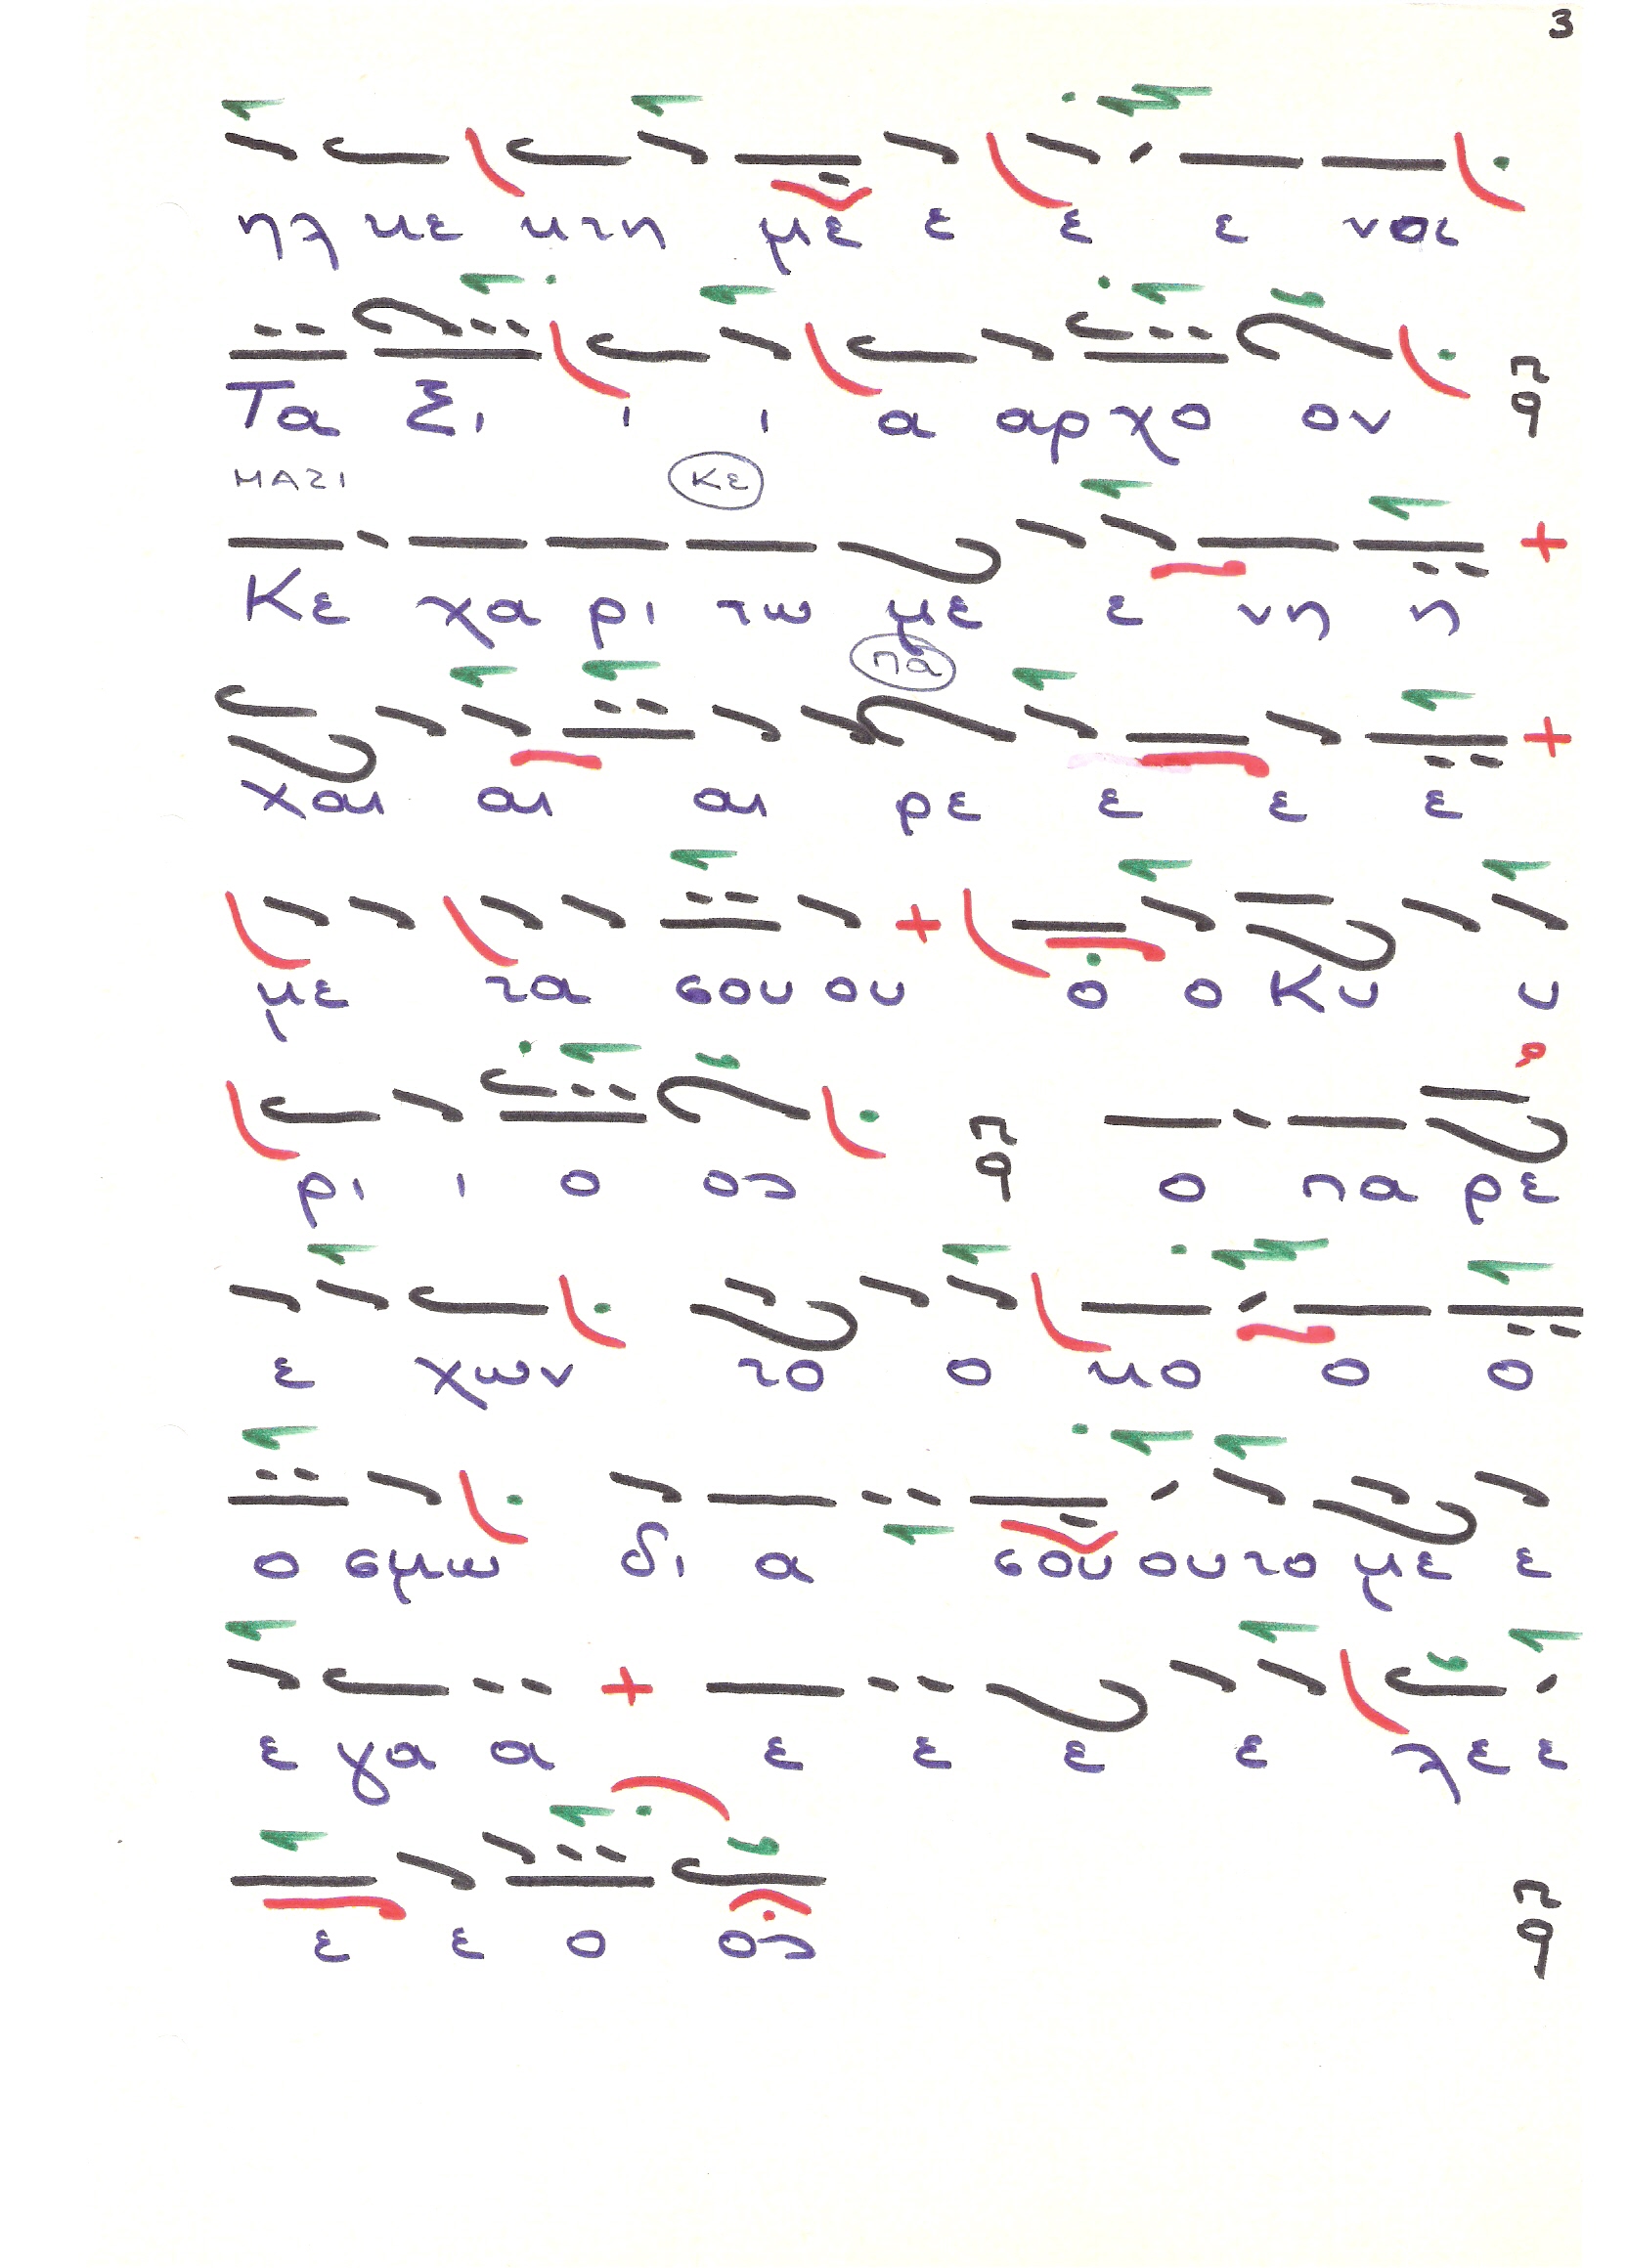 3
ηλ κε κτη με ε ε ε νοι
Τα ξι ι ι α αρ χο ον πα
ΜΑΖΙ κε
Κε χα ρι τω με ε νη η
πα
χαι αι αι ρε ε ε ε
με τα σου ου ο ο Κυ υ
ρι ι ο ος πα ο πα ρε
ε χων το ο κο ο ο
ο σμω δι α σου ου το με ε
ε γα α ε ε ε ε λε ε
ε ε ο ος πα